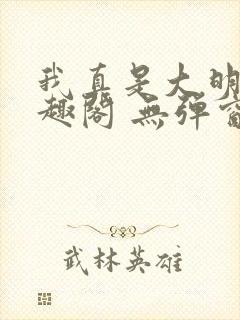 我真是大明
趣阁 無彈窗
武林英雄